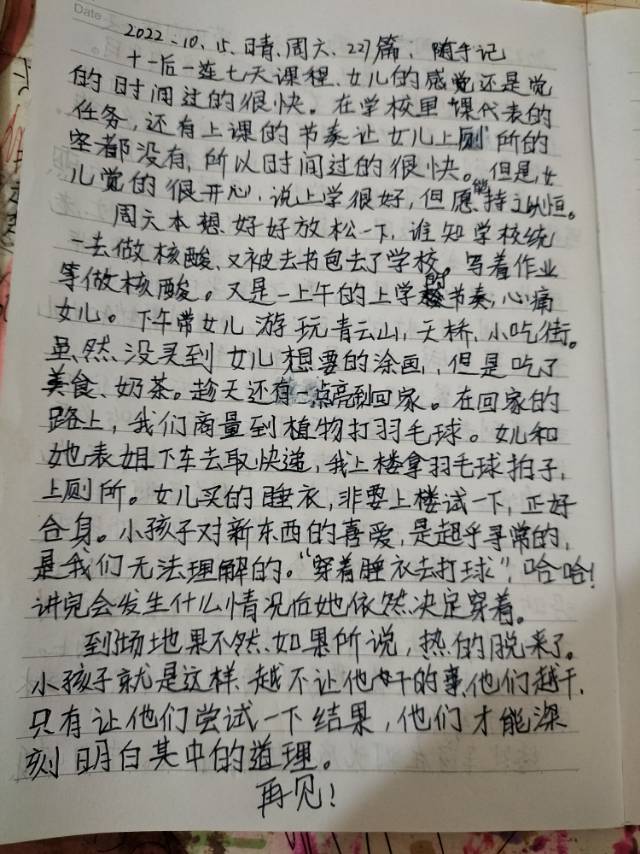 Date
2022.10.15.晴.周六.227篇：随手记
十一后一连七天课程、女儿的感觉还是觉
的时间过的很快。在学校里课代表的
任务，还有上课的节奏让女儿上厕所的
空都没有，所以时间过的很快。但是，女
儿觉的很开心，说上学很好，但愿能持之以恒。
周六本想好好放松一下，谁知学校统
一去做核酸、又被去书包去了学校。写着作业
等做核酸。又是一上午的上学的节奏，心痛
女儿。下午带女儿游玩青云山，天桥，小吃街。
虽然没买到女儿想要的涂画，但是吃了
美食、奶茶。趁天还有一点亮到回家。在回家的
路上，我们商量到植物打羽毛球。女儿和
她表姐下车去取快递，我上楼拿羽毛球拍子，
上厕所。女儿买的睡衣，非要上楼试一下，正好
合身。小孩子对新东西的喜爱，是超乎寻常的，
是我们无法理解的。“穿着睡衣去打球”，哈哈！
讲完会发生什么情况后她依然决定穿着。
到场地果不然、如果所说，热的脱来了。
小孩子就是这样、越不让他干的事、他们越干，
只有让他们尝试一下结果，他们才能深
刻明白其中的道理。
再见！